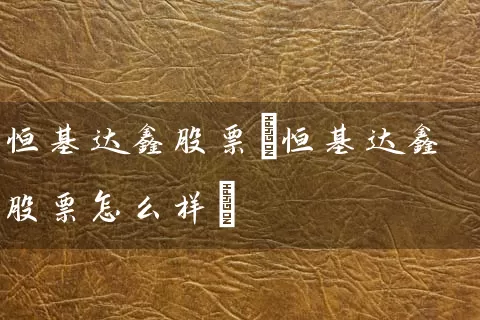 恒基达鑫股票恒基达鑫
股票怎么样